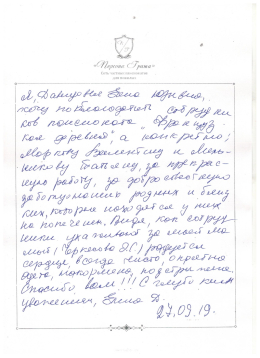 «Первая Грата»
Я, Данцовая Елена Юрьевна,
хочу поблагодарить сотрудни
ков пансионата "Француз
кая деревня", а конкретно:
Маркову Валентину и Мель
никову Татьяну, за прекрас
ную работу, за добросовестную
заботу о наших родных и близ
ких, которые находятся у них
на попечении. Видя, как сотруд
ники ухаживают за моей ма
мой (Саркелова Э.Г.) радуется
сердце, всегда чисто, опрятно
одета, накормлена, подстрижена.
Спасибо, вам!!! С глубоким
уважением, Елена Д.
27.09.19.